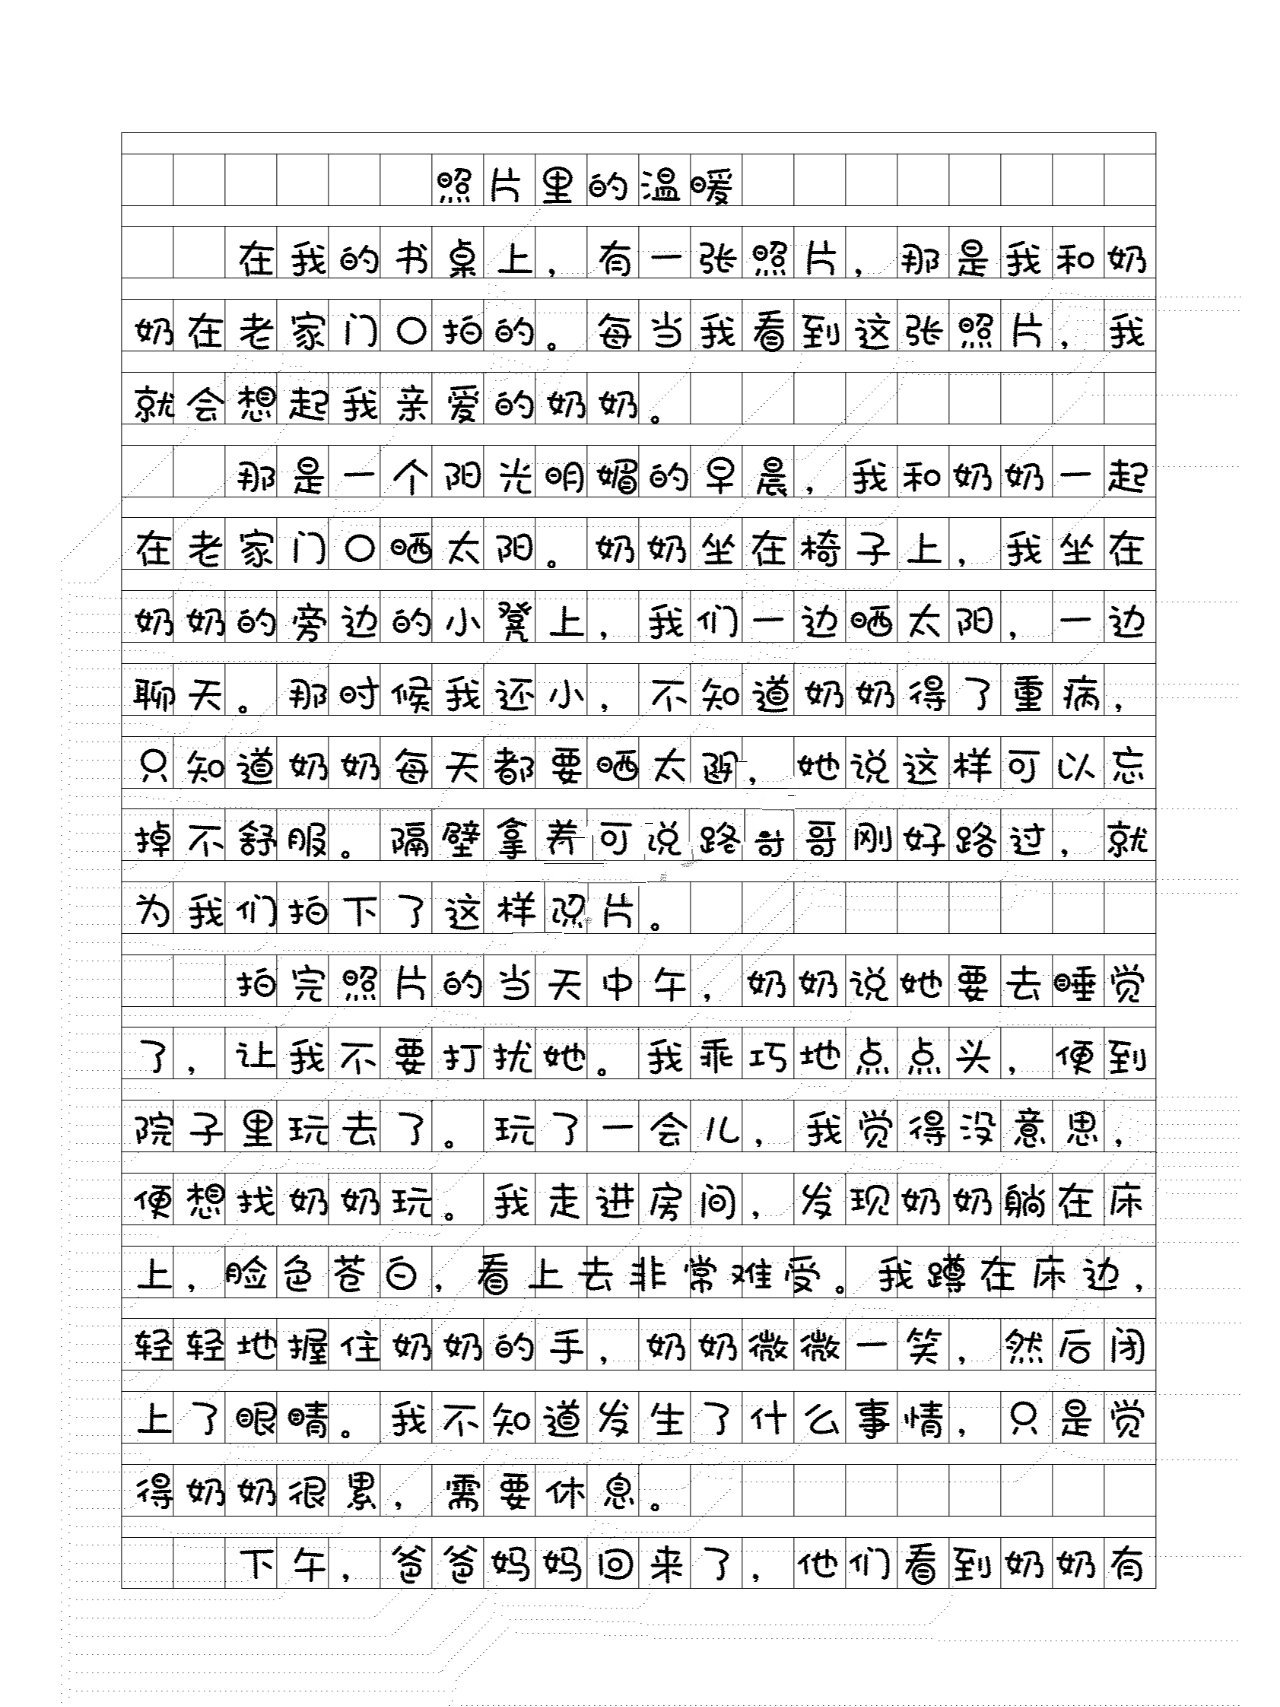 照片里的温暖
在我的书桌上，有一张照片，那是我和奶
奶在老家门口拍的。每当我看到这张照片，我
就会想起我亲爱的奶奶。
那是一个阳光明媚的早晨，我和奶奶一起
在老家门口晒太阳。奶奶坐在椅子上，我坐在
奶奶的旁边的小凳上，我们一边晒太阳，一边
聊天。那时候我还小，不知道奶奶得了重病，
只知道奶奶每天都要晒太阳，她说这样可以忘
掉不舒服。隔壁拿养可说路哥哥刚好路过，就
为我们拍下了这样照片。
拍完照片的当天中午，奶奶说她要去睡觉
了，让我不要打扰她。我乖巧地点点头，便到
院子里玩去了。玩了一会儿，我觉得没意思，
便想找奶奶玩。我走进房间，发现奶奶躺在床
上，脸色苍白，看上去非常难受。我蹲在床边，
轻轻地握住奶奶的手，奶奶微微一笑，然后闭
上了眼睛。我不知道发生了什么事情，只是觉
得奶奶很累，需要休息。
下午，爸爸妈妈回来了，他们看到奶奶有